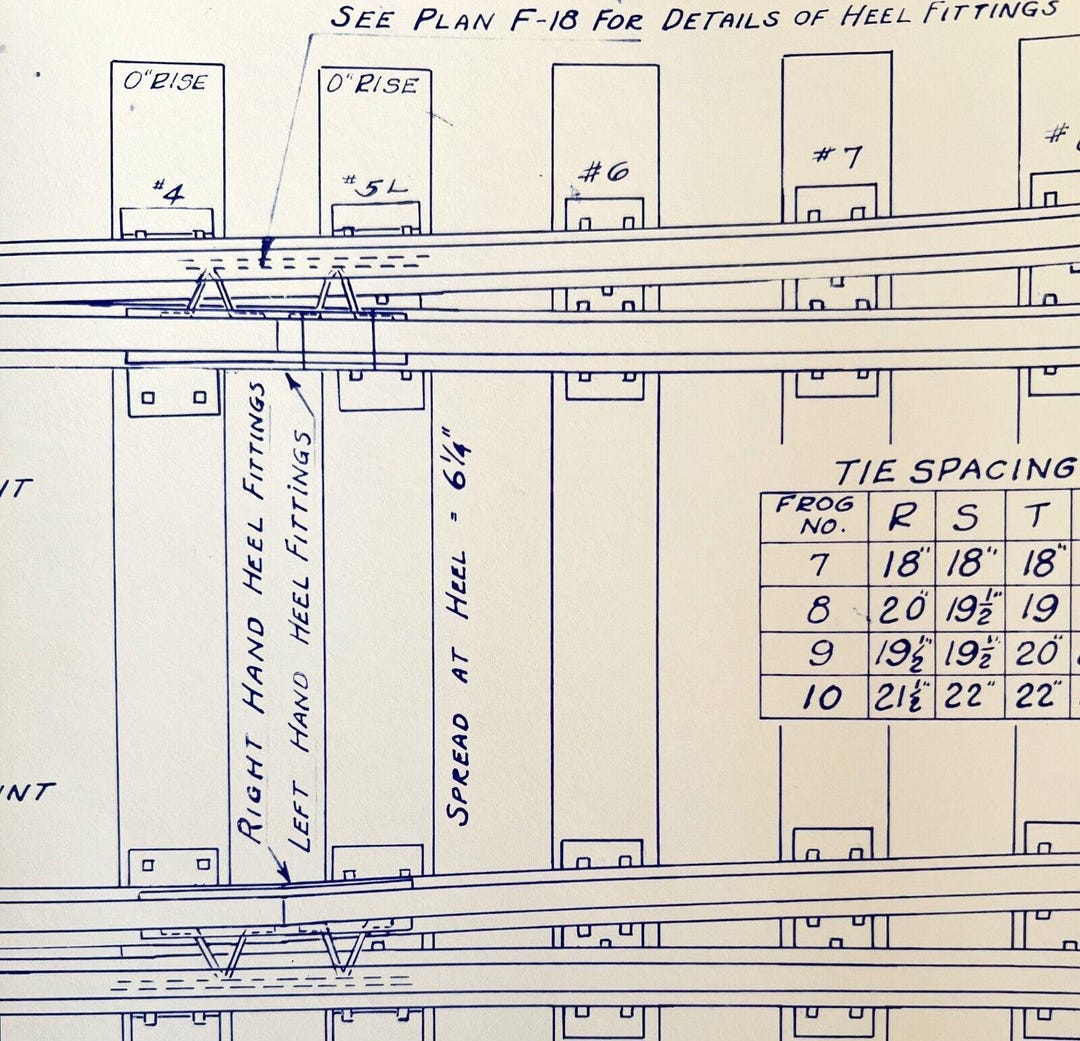 SEE PLAN F-18 FOR DETAILS OF HEEL FITTINGS
O" RISE
O" RISE
#4
#5L
#6
#7
#
RIGHT HAND HEEL FITTINGS
LEFT HAND HEEL FITTINGS
SPREAD AT HEEL = 6 1/4"
IT
INT
TIE SPACING
FROG NO. R S T
7 18" 18" 18"
8 20" 19 1/2" 19
9 19 1/2" 19 1/2" 20"
10 21 1/2" 22" 22"